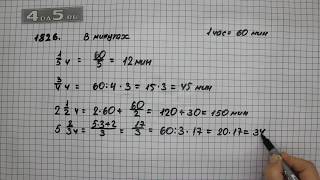 4DA5.RU
1826. В минутах
1 час = 60 мин
1/5 ч = 60/5 = 12 мин
3/4 ч = 60:4·3 = 15·3 = 45 мин
2 1/2 ч = 2·60 + 60/2 = 120 + 30 = 150 мин
5 2/3 ч = (5·3+2)/3 = 17/3 = 60:3·17 = 20·17 = 34